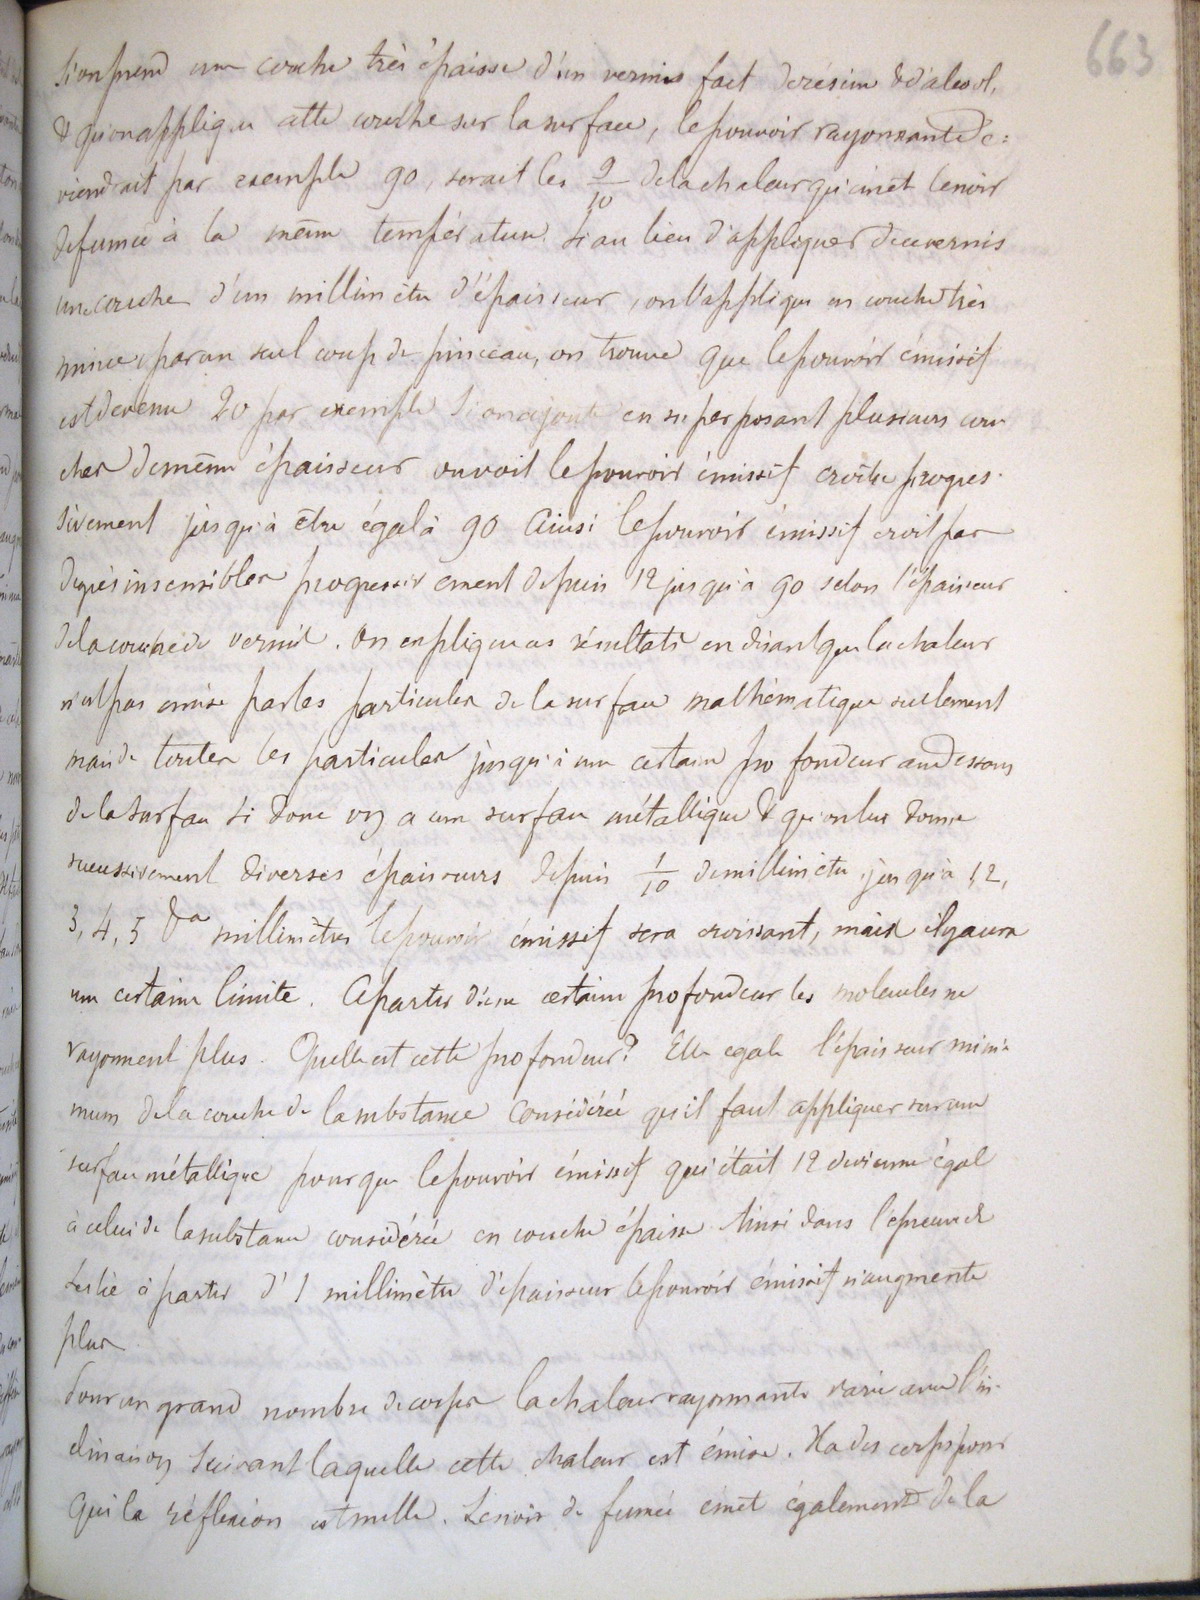 663
Si on prend une couche très épaisse d'un vernis fait de résine & d'alcool,
& qu'on applique cette couche sur la surface, le pouvoir rayonnant de=
viendrait par exemple 90, serait les 9/10 de la chaleur qu'émet le noir
de fumée à la même température. Si au lieu d'appliquer de ce vernis
une couche d'un millimètre d'épaisseur, on l'applique en couche très
mince, par un seul coup de pinceau, on trouve que le pouvoir émissif
est devenu 20 par exemple Si on ajoute en superposant plusieurs cou
ches de même épaisseur on voit le pouvoir émissif croître progres-
sivement jusqu'à être égal à 90 Ainsi le pouvoir émissif croit par
degrés insensibles progressivement depuis 12 jusqu'à 90 selon l'épaisseur
de la couche de vernis. On explique ces résultats en disant que la chaleur
n'est pas émise par les particules de la surface mathématique seulement
mais de toutes les particules jusqu'à une certaine profondeur au dessous
de la surface Si donc on a une surface métallique & qu'on lui donne
successivement diverses épaisseurs depuis 1/10 de millimètre jusqu'à 1, 2,
3, 4, 5 &a millimètres le pouvoir émissif sera croissant, mais il y aura
une certaine limite. A partir d'une certaine profondeur les molécules ne
rayonnent plus. Quelle est cette profondeur? Elle égale l'épaisseur mini-
mum de la couche de la substance considérée qu'il faut appliquer sur une
surface métallique pour que le pouvoir émissif qui était 12 devienne égal
à celui de la substance considérée en couche épaisse Ainsi dans l'épreuve de
Leslie à partir d'1 millimètre d'épaisseur le pouvoir émissif n'augmente
plus
Pour un grand nombre de corps la chaleur rayonnante varie avec l'in-
clinaison suivant laquelle cette chaleur est émise. Il a des corps pour
qui la réflexion est nulle. Le noir de fumée émet également de la